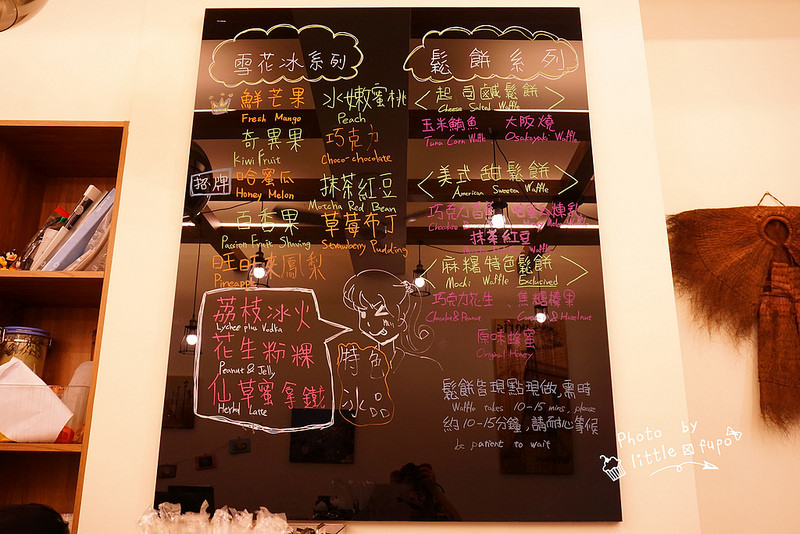 雪花冰系列
鮮芒果
Fresh Mango
奇異果
Kiwi Fruit
招牌
哈蜜瓜
Honey Melon
百香果
Passion Fruit Shaving
旺旺來鳳梨
Pineapple
水嫩蜜桃
Peach
巧克力
Choco-chocolate
抹茶紅豆
Matcha Red Bean
草莓布丁
Strawberry Pudding
荔枝冰火
Lychee plus Vodka
花生粉粿
Peanut & Jelly
仙草蜜拿鐵
Herbal Latte
特色
冰品
鬆餅系列
起司鹹鬆餅
Cheese Salted Waffle
玉米鮪魚 大阪燒
Tuna Corn Waffle Osakayaki Waffle
美式甜鬆餅
American Sweeten Waffle
巧克力
抹茶紅豆
Waffle
麻糬特色鬆餅
Mochi Waffle Exclusived
巧克力花生、焦糖榛果
Chocolate & Peanut Hazelnut
原味蜂蜜
Original Honey
鬆餅皆現點現做,需時
Waffle takes 10-15 mins, please
約10-15分鐘,請耐心等候
be patient to wait
Photo by
little fupo